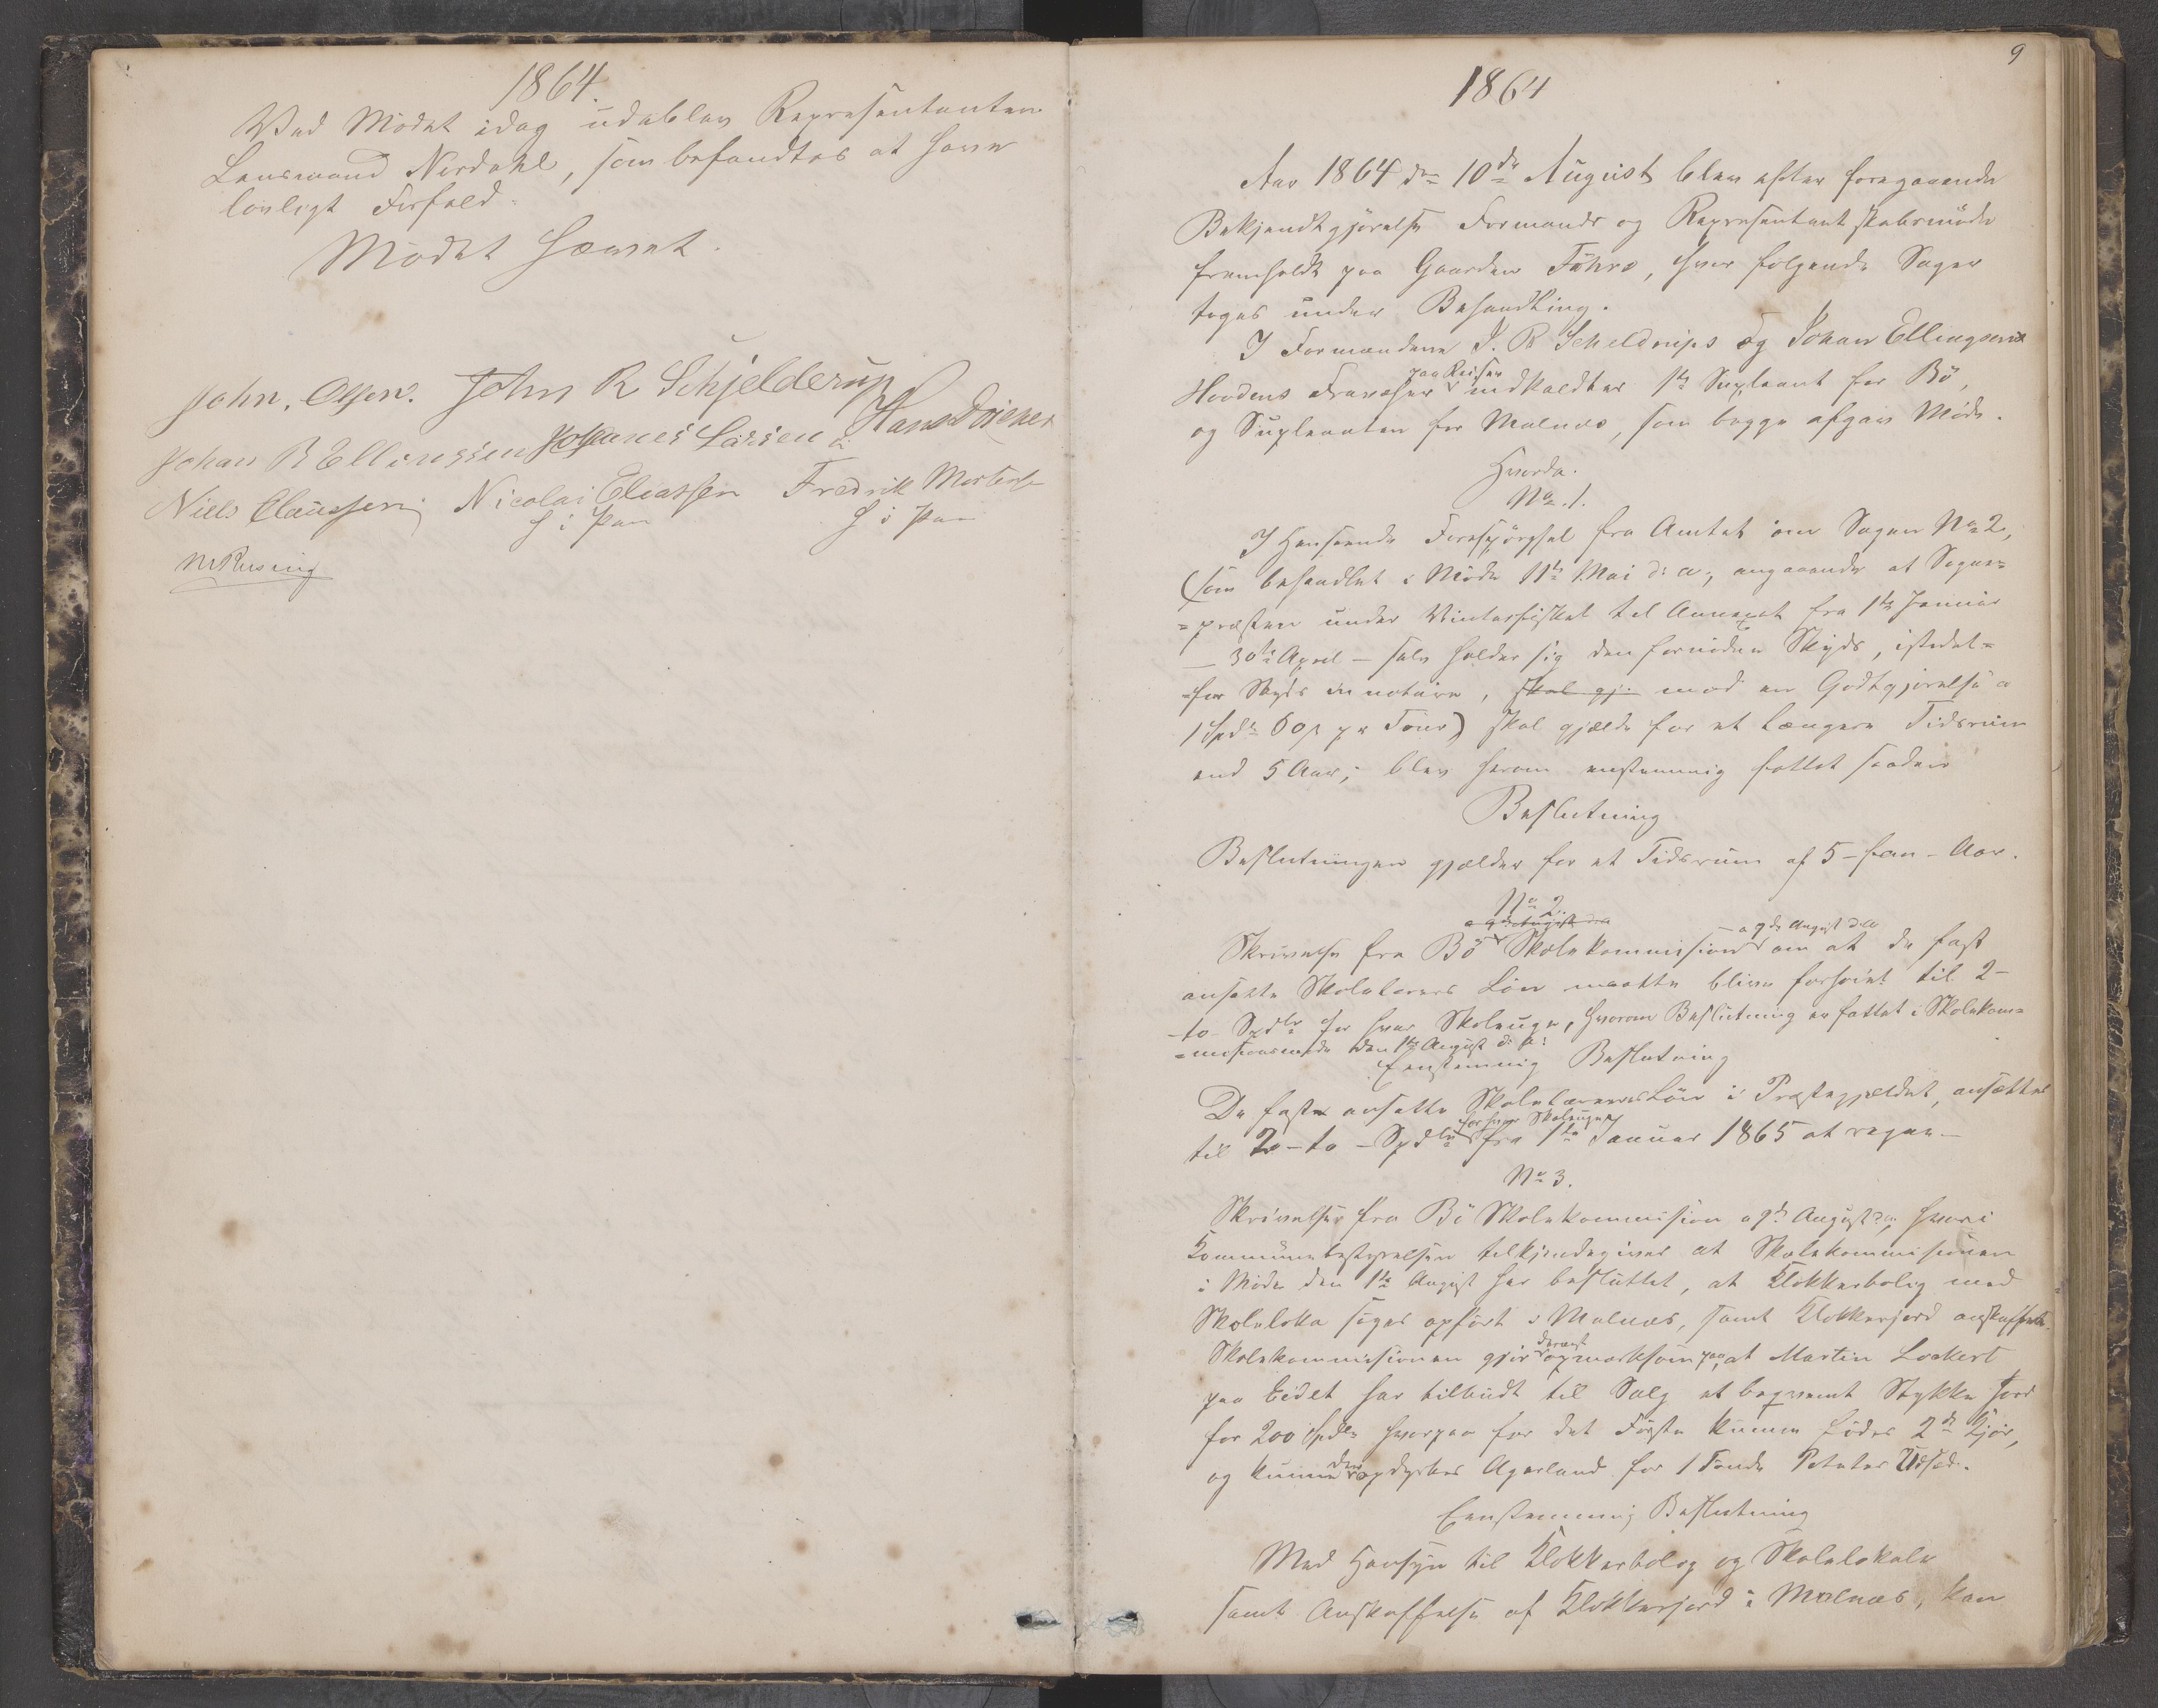 1864.
Ved Mödet idag udeblev Repræsentanten
Lensmand Nordahl, som befandtes at have
lovligt Forfald.
Mödet hævet.
John. Olsen. John R Schjelderup
Johan B Ellingsen Johannes Larsen Hans
Niels Claussen Nicolai Eliassen Fredrik Mortens
h i Pen h i Pen
9
1864
Aar 1864 den 10de August blev efter foregaaende
Bekjendtgjörelse Formands og Repræsentantskabsmöde
fremholdt paa Gaarden Föhre, hvor fölgende Sager
toges under Behandling.
I Formændene J. R Scheldrups og Johan Ellingsens
paa Reiser
Hovdens Fraværher indkaldtes 1ste Supleant for Bö,
og Supleanten for Malnæs, som begge afgav Möde.
Hvorda.
No. 1.
I Henseende Forespörgsel fra Amtet om Sagen No 2,
(som behandlet i Möde 11te Mai d: a:, angaaende at Sogne=
=præsten under Vinterfisket til Annexet fra 1ste Januar
— 30te April — selv holder sig den fornödne Skyds, istedet=
-for Skyds in natura, skal gj. mod en Godtgjörelse a
1 Spdlr 60 s pr Tour) skal gjælde for et længere Tidsrum
end 5 Aar; blev herom enstemmig fattet saadan
Beslutning
Beslutningen gjælder for et Tidsrum af 5-fem-Aar.
No 2.
a 9de August d:a
— a 9de August d:a
Skrivelse fra Bö Skolekommision om at de fast
ansatte Skolelæreres Lön maatte blive forhöiet til 2-
-to- Spdlr for hver Skoleuge, hvorom Beslutning er fattet i Skolekom=
=misionsmöde den 1ste August d: A:
Eenstemmig Beslutning
De faste ansatte Skolelæreres Lön i Præstegjeldet, ansættes
for hver Skoleuge
til 2-to-Spdlr fra 1ste Januar 1865 at regne.—
No 3.
Skrivelser fra Bö Skolekommision a 9de August d:a:, hvori
Kommunebestyrelsen tilkjendegives at Skolekommisionen
i Möde den 1ste August har besluttet, at Klokkerbolig med
Skolelokale söges opfört i Malnæs, samt Klokkerjord anskaffet.
derhos
Skolekommisionen gjör opmærksom paa, at Martin Lockert
paa Eidet har tilbudt til Salg et beqvemt Stykke Jord
for 200 Spdlr hvorpaa for det Förste kunne födes 2de Kjör,
der
og kunne opdyrkes Agerland for 1 Tönde Poteter Udsæd.
Eenstemmig Beslutning
Med Hensyn til Klokkerbolig og Skolelokale
samt Anskaffelse af Klokkerjord i Malnæs, kan